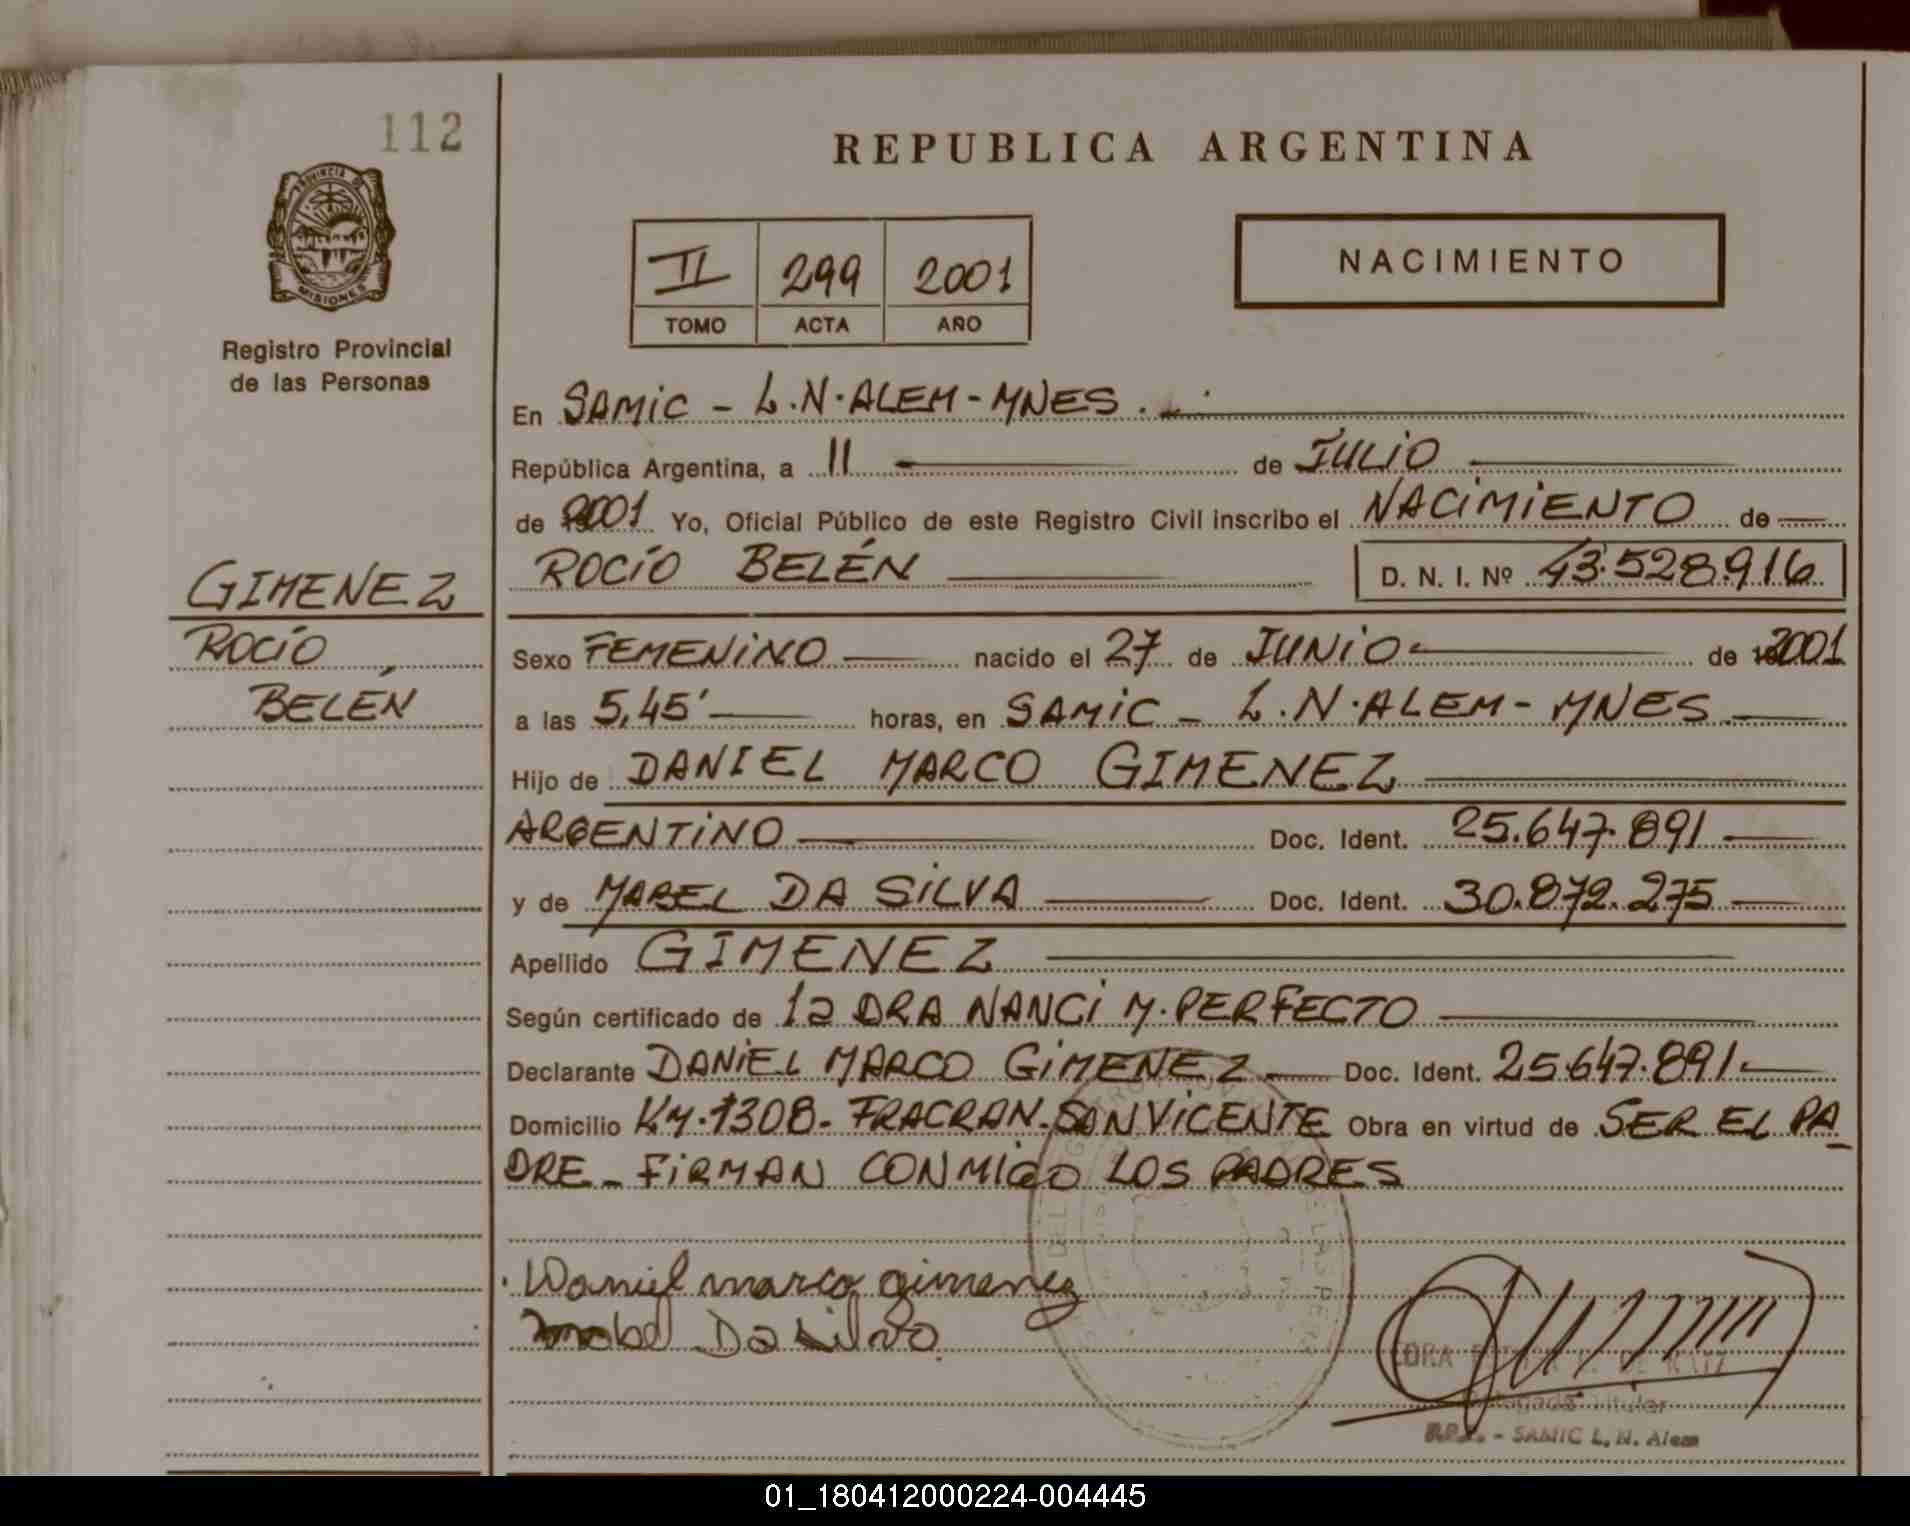 112
REPUBLICA ARGENTINA
PROVINCIA DE
MISIONES
Registro Provincial
de las Personas
II 299 2001
TOMO ACTA AÑO
NACIMIENTO
En SAMIC - L.N. ALEM - MNES.
República Argentina, a 11 de JULIO
de 2001 Yo, Oficial Público de este Registro Civil inscribo el NACIMIENTO de
ROCÍO BELÉN D. N. I. Nº 43.528.916
GIMENEZ
ROCÍO
BELÉN
Sexo FEMENINO nacido el 27 de JUNIO de 2001
a las 5,45' horas, en SAMIC - L.N. ALEM - MNES
Hijo de DANIEL MARCO GIMENEZ
ARGENTINO Doc. Ident. 25.647.891
y de MABEL DA SILVA Doc. Ident. 30.872.275
Apellido GIMENEZ
Según certificado de la DRA NANCI M. PERFECTO
Declarante DANIEL MARCO GIMENEZ Doc. Ident. 25.647.891
Domicilio KM. 1308 - FRACRAN - SAN VICENTE Obra en virtud de SER EL PA
DRE - FIRMAN CONMIGO LOS PADRES
Daniel marco gimenez
Mabel Da Silva
Titular
SAMIC L. N. Alem
01_180412000224-004445